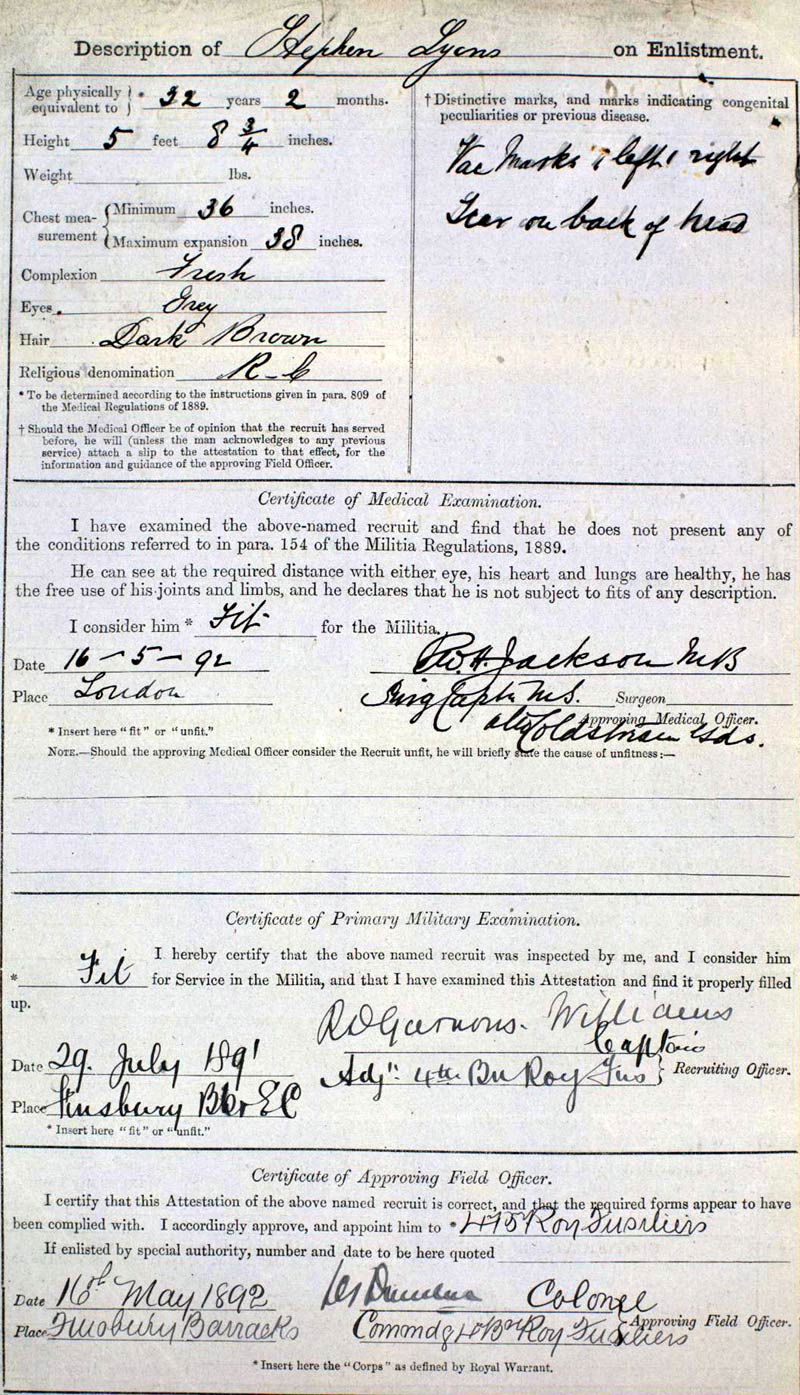 Description of Stephen Lyons on Enlistment.
Age physically equivalent to } * 32 years 2 months.
Height 5 feet 8 3/4 inches.
Weight lbs.
Chest measurement { Minimum 36 inches.
Maximum expansion 38 inches.
Complexion Fresh
Eyes. Grey
Hair Dark Brown
Religious denomination R-C
* To be determined according to the instructions given in para. 809 of
the Medical Regulations of 1889.
† Should the Medical Officer be of opinion that the recruit has served
before, he will (unless the man acknowledges to any previous
service) attach a slip to the attestation to that effect, for the
information and guidance of the approving Field Officer.
† Distinctive marks, and marks indicating congenital
peculiarities or previous disease.
Vac Marks 1 left 1 right
Scar on back of head
Certificate of Medical Examination.
I have examined the above-named recruit and find that he does not present any of
the conditions referred to in para. 154 of the Militia Regulations, 1889.
He can see at the required distance with either eye, his heart and lungs are healthy, he has
the free use of his joints and limbs, and he declares that he is not subject to fits of any description.
I consider him * Fit for the Militia.
Date 16-5-92
Jackson MB
Place London
Surg Captn M.S. Surgeon
Approving Medical Officer.
Coldstream Gds.
* Insert here "fit" or "unfit."
NOTE.—Should the approving Medical Officer consider the Recruit unfit, he will briefly state the cause of unfitness:—
Certificate of Primary Military Examination.
I hereby certify that the above named recruit was inspected by me, and I consider him
* Fit for Service in the Militia, and that I have examined this Attestation and find it properly filled
up.
R D Garnons. Williams
Captain
Date 29. July 1891
Adjn. 4th Bn Roy Fus } Recruiting Officer.
Place Finsbury Bks EC
* Insert here "fit" or "unfit."
Certificate of Approving Field Officer.
I certify that this Attestation of the above named recruit is correct, and that the required forms appear to have
been complied with. I accordingly approve, and appoint him to * 4 Roy Fusiliers
If enlisted by special authority, number and date to be here quoted
Date 16th May 1892
Colonel
Place Finsbury Barracks
Commdg 4 Bn Roy Fusiliers } Approving Field Officer.
* Insert here the "Corps" as defined by Royal Warrant.